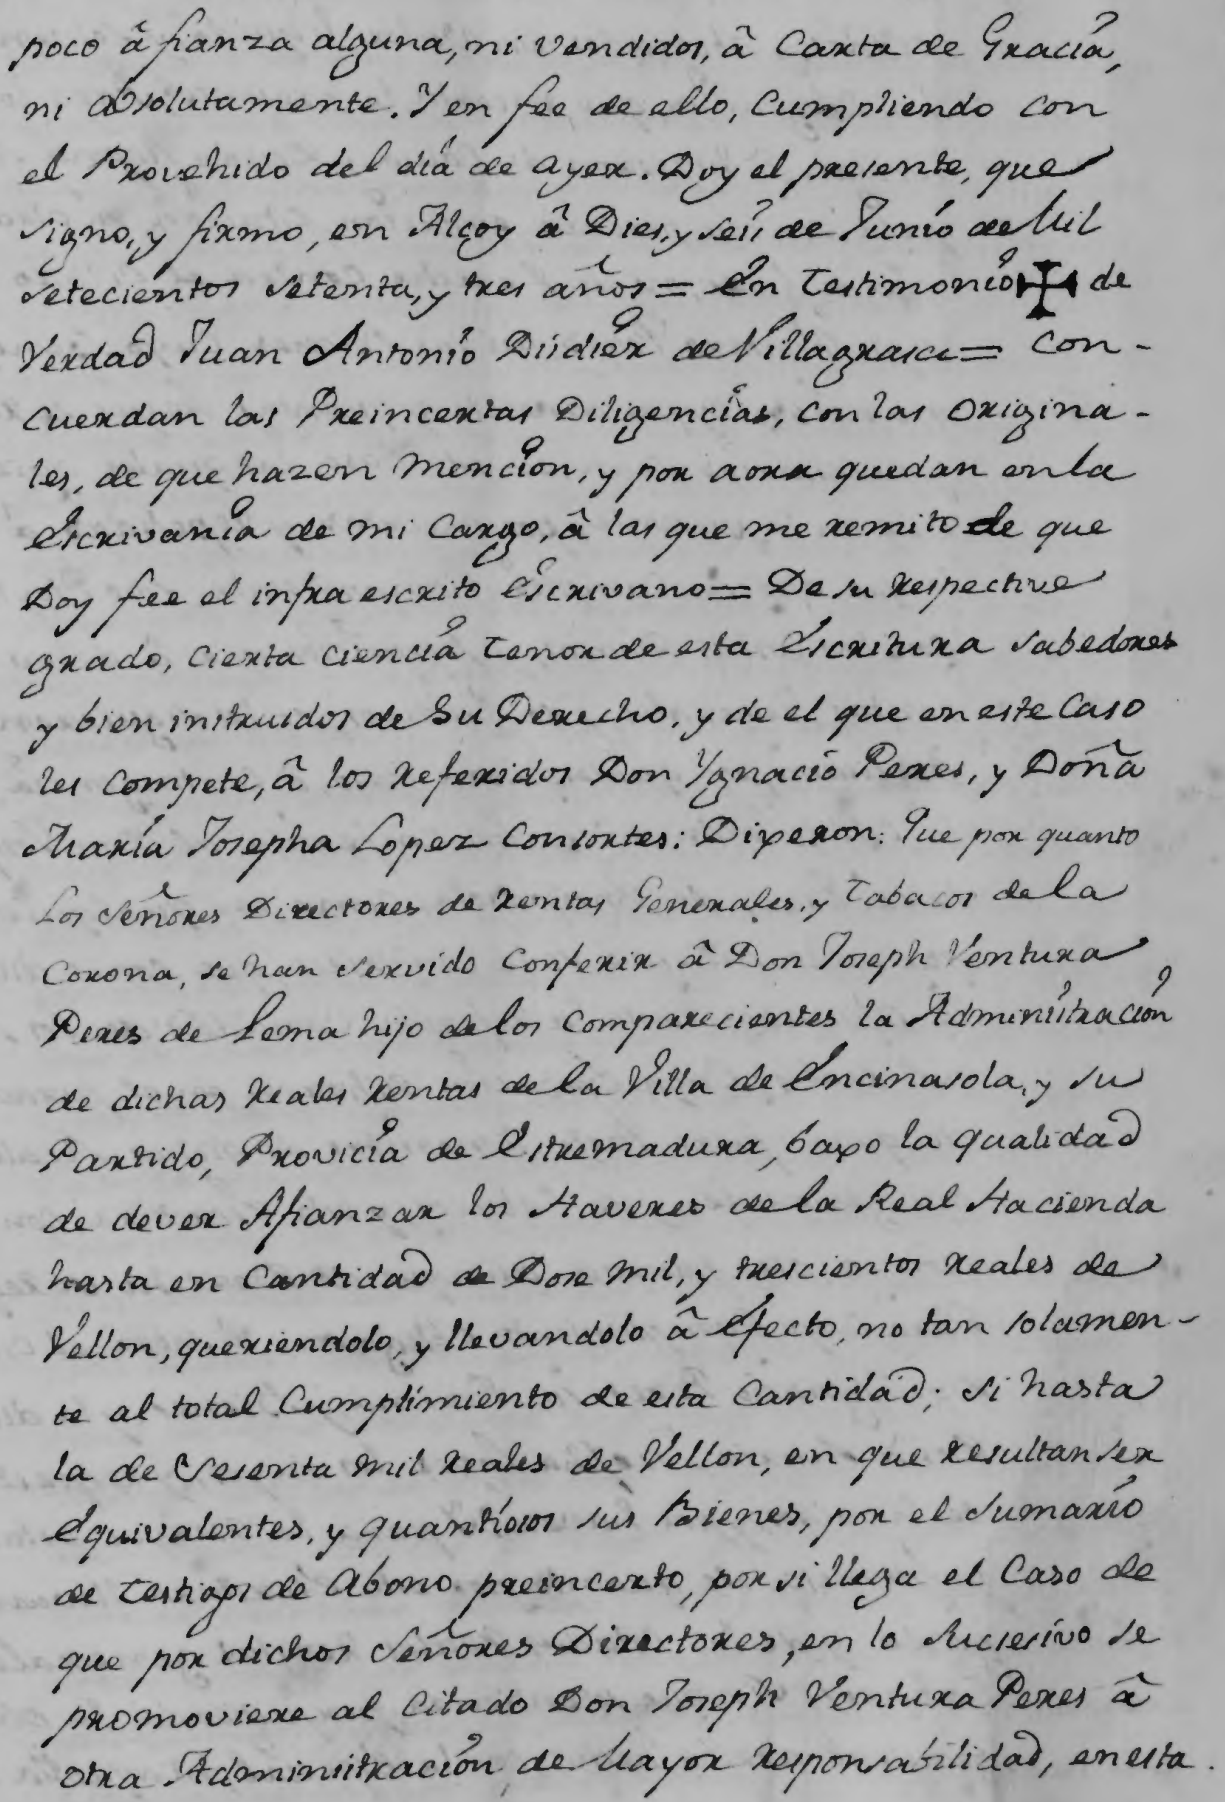 poco â fianza alguna, ni vendidos, â Carta de Gracia,
ni absolutamente. Y en fee de ello, Cumpliendo con
el Provehido del día de ayer. Doy el presente, que
signo, y firmo, en Alcoy â Dies, y seis de Junio de Mil
setecientos setenta, y tres años = En Testimonio ✠ de
Verdad Juan Antonio Disdier de Villagrasa = Con-
cuerdan las Preincertas Diligencias, con las Origina-
les, de que hazen Mencion, y por aora quedan en la
Escrivanía de mi Cargo, â las que me remito de que
Doy fee el infra escrito Escrivano = De su respective
grado, cierta ciencia tenor de esta Escritura sabedores
y bien instruidos de Su Derecho, y de el que en este Caso
les Compete, â los referidos Don Ygnacio Peres, y Doña
María Josepha Lopez Consortes: Dixeron: Que por quanto
Los Señores Directores de Rentas Generales, y Tabacos de la
Corona, se han servido Conferir â Don Joseph Ventura
Peres de Lema hijo de los Comparecientes la Administracion
de dichas Reales Rentas de la Villa de Encinasola, y su
Partido, Provicia de Estremadura, baxo la qualidad
de dever Afianzar los Haveres de la Real Hacienda
hasta en Cantidad de Dose mil, y trescientos reales de
Vellon, queriendolo, y llevandolo â efecto, no tan solamen-
te al total Cumplimiento de esta Cantidad; si hasta
la de Sesenta mil reales de Vellon, en que resultan ser
Equivalentes, y quantiosos sus Bienes, por el sumario
de testigos de Abono preincerto, por si llega el Caso de
que por dichos Señores Directores, en lo sucesivo se
promoviere al Citado Don Joseph Ventura Peres â
otra Administracion de Mayor responsabilidad, en esta